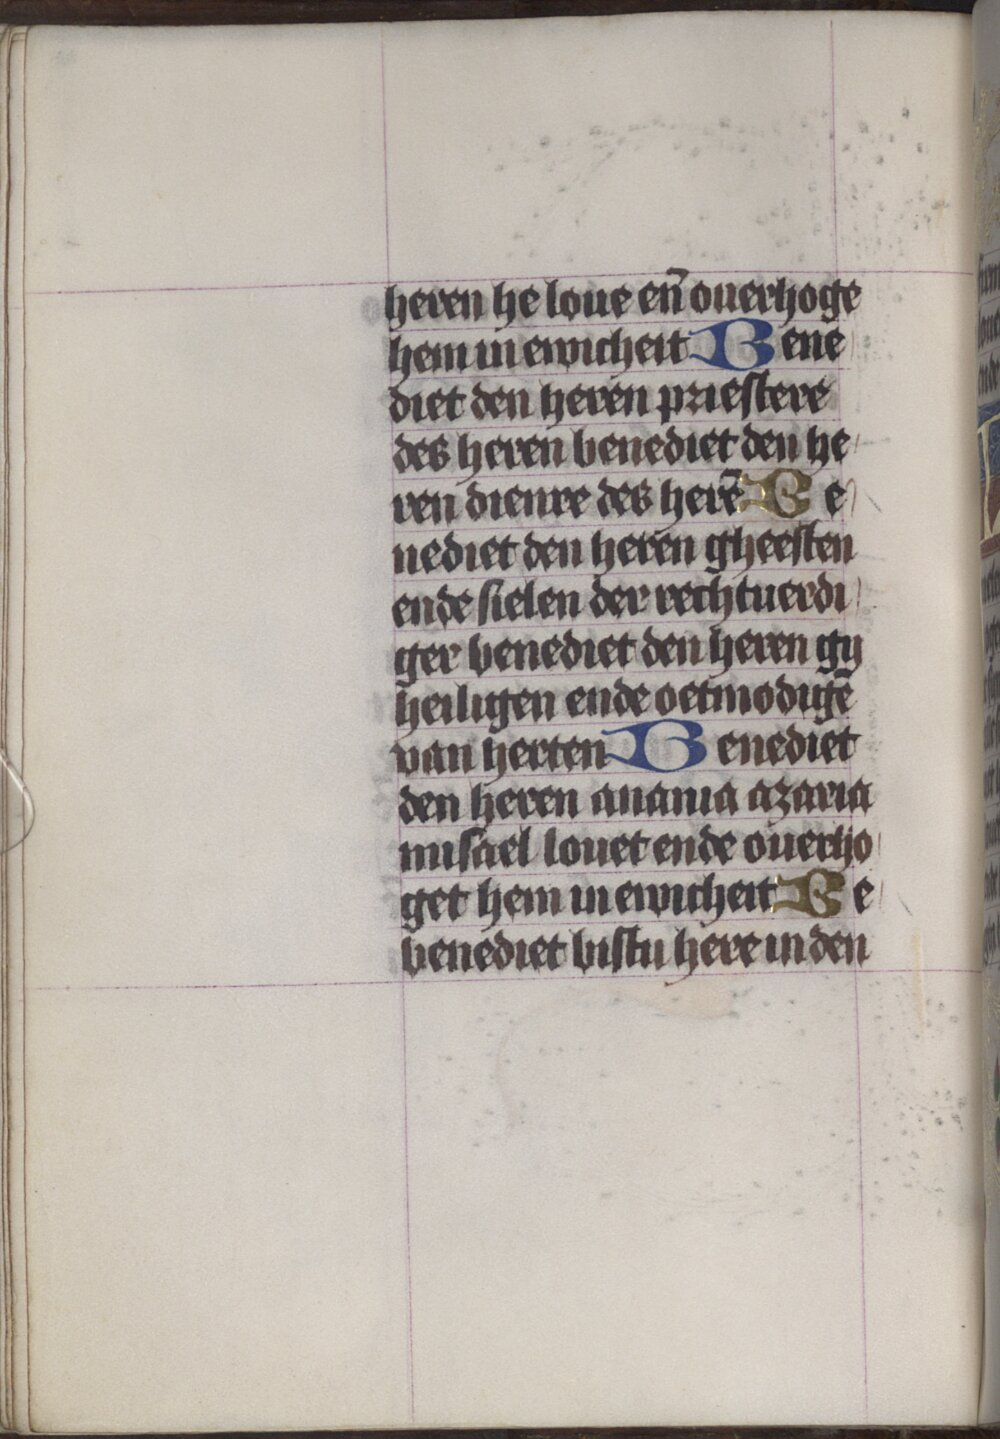 heren he loue en̄ ouerhoge
hem in ewicheit Bene
diet den heren priestere
des heren benediet den he
ren dienre des herē Be
nediet den heren gheesten
ende sielen der rechtuerdi
ger benediet den heren gy
heiligen ende oetmodigē
van herten Benediet
den heren anania azaria
misael louet ende ouerho
get hem in ewicheit Be
benediet bistu here in den